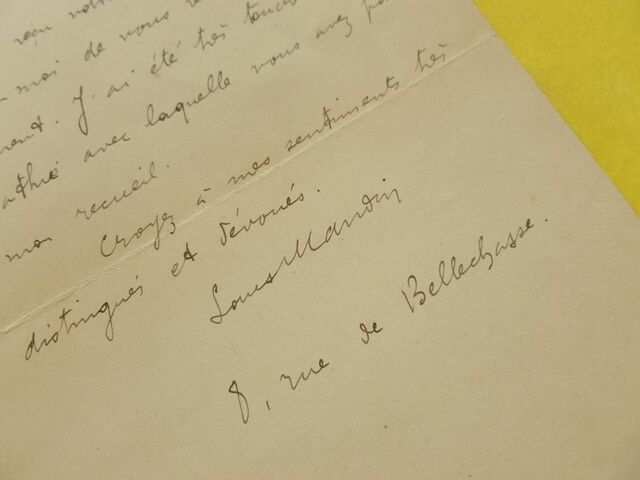 reçu votre
moi de vous re
ment. J'ai été très touch
athie avec laquelle vous avez pa
mon recueil.
Croyez à mes sentiments très
distingués et dévoués.
Louis Mandin
8, rue de Bellechasse.